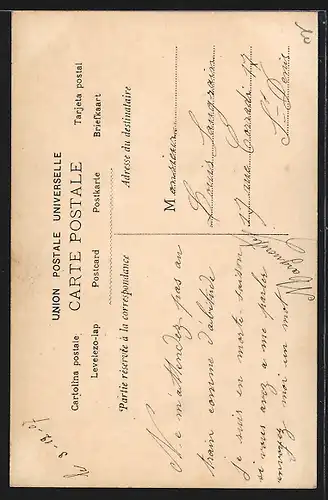 UNION POSTALE UNIVERSELLE
CARTE POSTALE
Cartolina postale Tarjeta postal
Levelezo-lap Postcard Postkarte Briefkaart
Partie réservée à la correspondance
Adresse du destinataire
Ne m'attendez pas au
train comme d'abitude
je suis en morte-saison
si vous avez a me parler
envoyez moi un mot
Marguerite
Monsieur
Louis
17
St-Denis